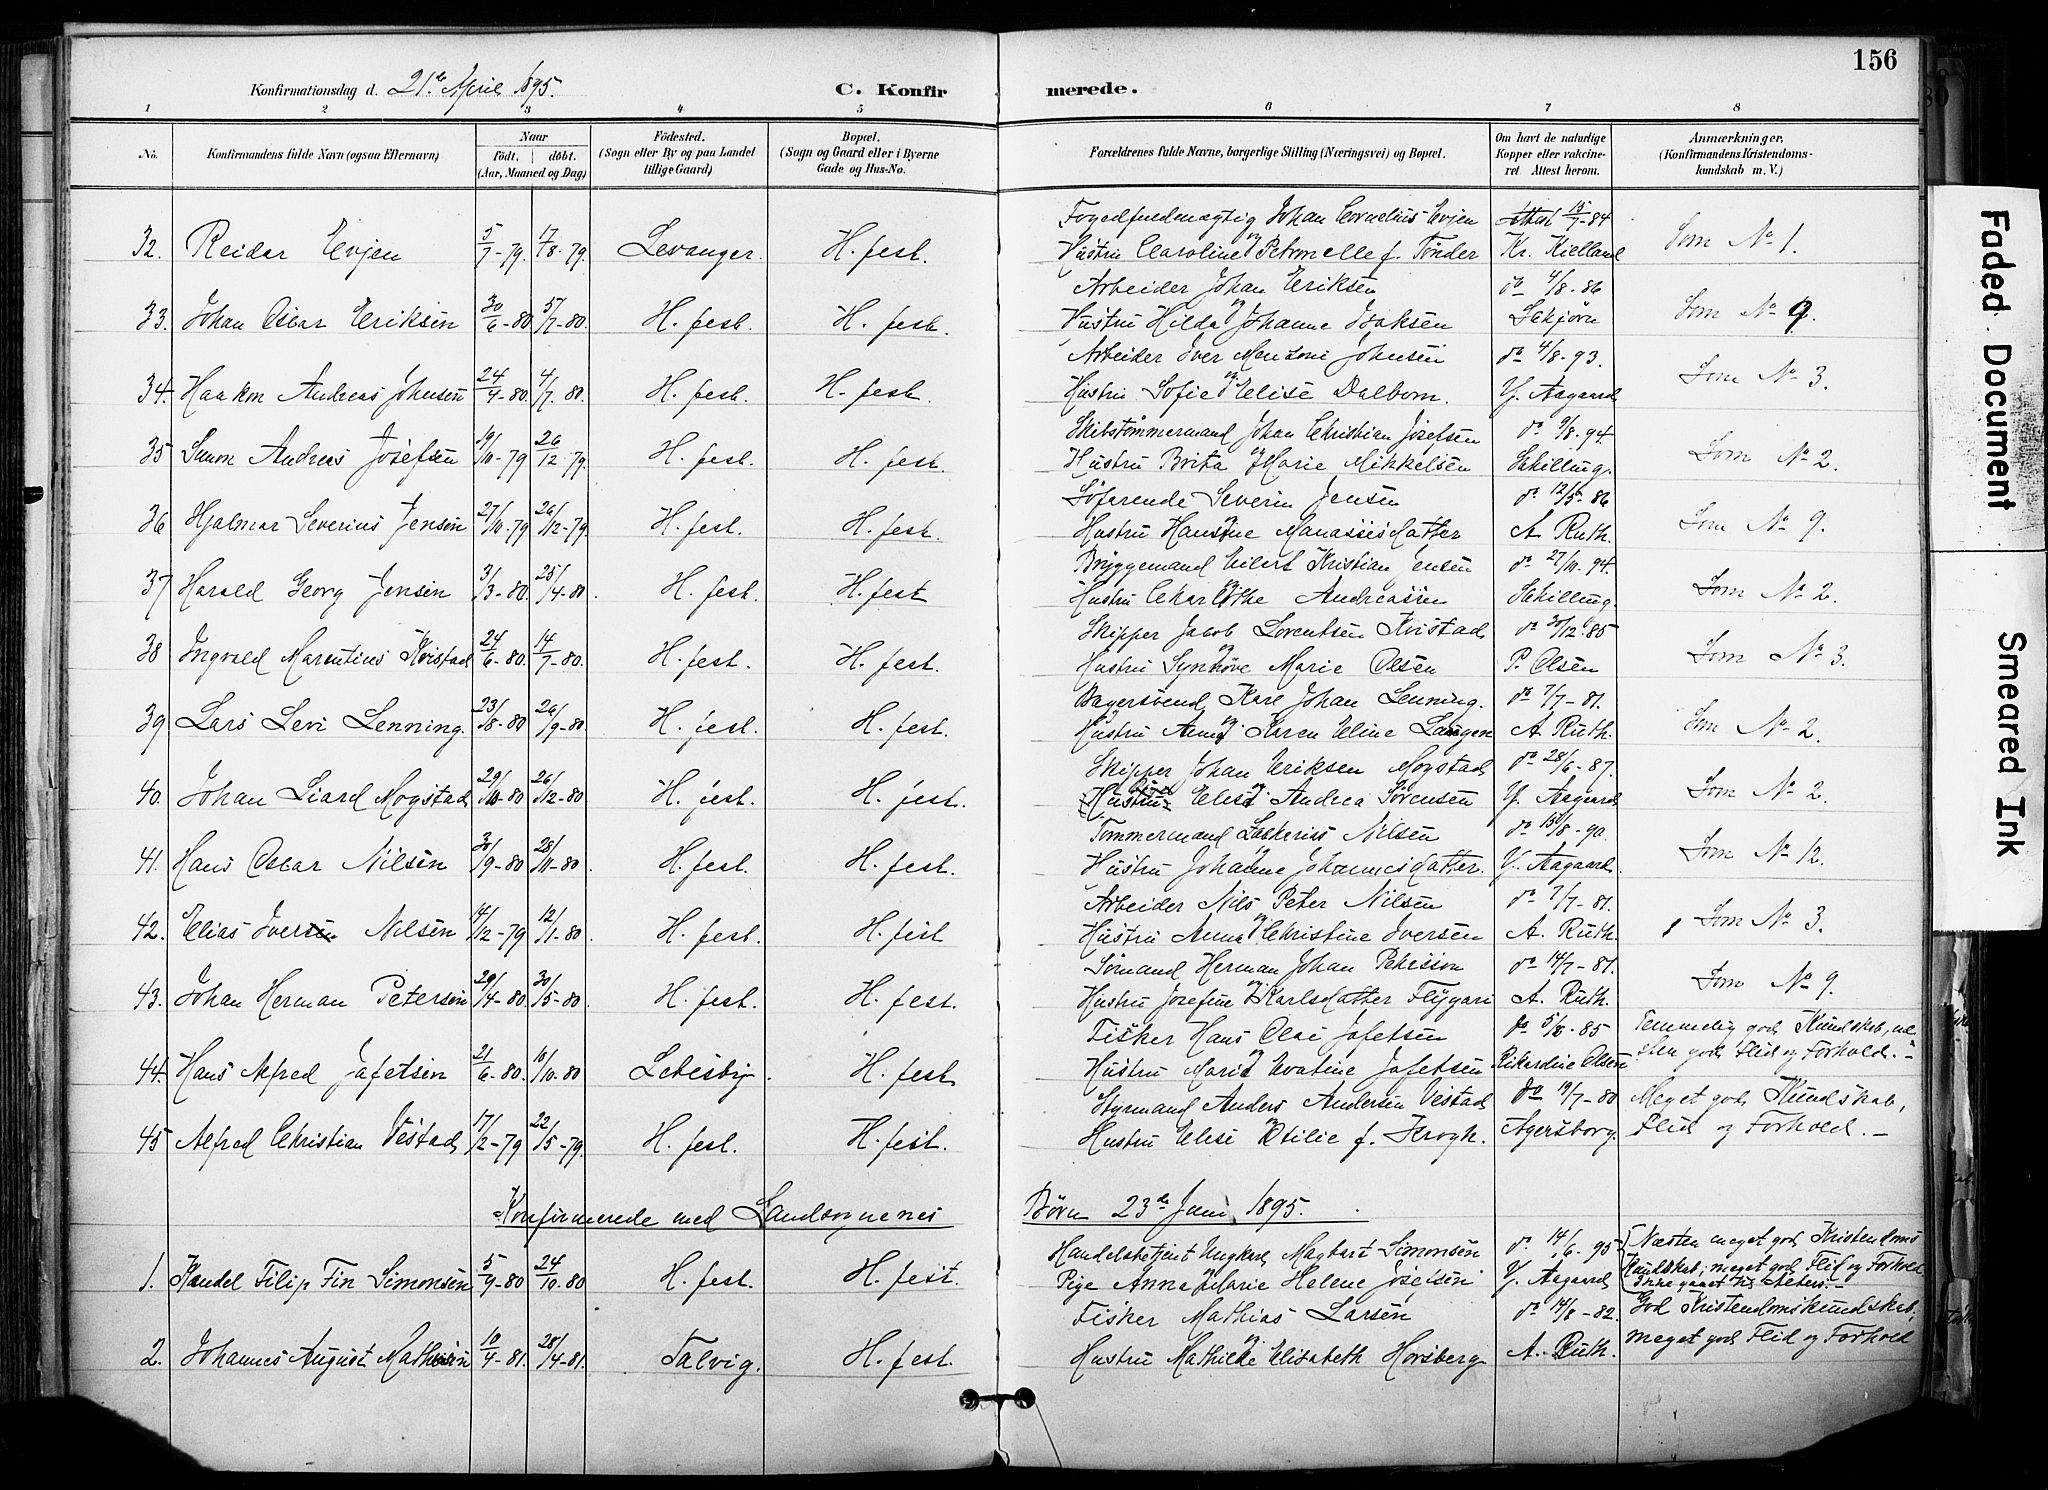 156
Konfirmationsdag d. 21de April 1895.
C. Konfirmerede.
1 2 3 4 5 6 7 8
No. Konfirmandens fulde Navn (ogsaa Efternavn) Naar födt. döbt. (Aar, Maaned og Dag) Födested. (Sogn eller By og paa Landet tillige Gaard) Bopæl. (Sogn og Gaard eller i Byerne Gade og Hus-No. Forældrenes fulde Navne, borgerlige Stilling (Næringsvei) og Bopæl. Om havt de naturlige Kopper eller vakcineret Attest herom. Anmærkninger, (Konfirmandens Kristendomskundskab m. V.)
Fogedfuldmægtig Johan Cornelius Evjen Attest 15/7-84
32. Reidar Evjen 5/7-79. 17/8-79. Levanger. H. fest. Hustru Caroline Petronelle f. Tønder Kr. Kielland Som No 1.
Arbeider Johan Eriksen do 4/8-86
33. Johan Oscar Eriksen 30/6-80 5/7-80. H. fest. H. fest. Hustru Hilda Johanne Isaksen Som No 9.
Arbeider Iver Johnsen do 4/8-93.
34. Haakon Andreas Johnsen 24/4-80. 4/7-80. H. fest. H. fest. Hustru Sofie Elise Dalbom. Y. Aagaard Som No 3.
Skibstømmermand Johan Christian Josefsen do 9/8-94
35 Simon Andreas Josefsen 19/10-79 26/12-79. H. fest. H. fest. Hustru Brita Marie Mikkelsen Schilling. Som No 2.
Søfarende Severin Jensen do 12/5-86
36 Hjalmar Severius Jensen 27/10-79 26/12-79. H. fest. H. fest. Hustru Hansine Manassesdatter A. Ruth. Som No 9.
Bryggemand Eilert Kristian Jensen do 27/10-94.
37 Harald Georg Jensen 3/3-80. 25/4-80. H. fest. H. fest Hustru Charlothe Andreassen Schilling. Som No 2.
Skipper Jacob Lorentsen Kvistad do 30/12-85
38 Ingvald Marentius Kvistad 24/6-80. 14/7-80. H. fest. H. fest. Hustru Synnøve Marie Olsen P. Olsen Som No 3.
Bagersvend Karl Johan Lenning. do 7/7-81.
39 Lars Levi Lenning. 23/8-80 26/9-80 H. fest. H. fest. Hustru Anna Karen Eline Langen A. Ruth. Som No 2.
Skipper Johan Eriksen Mogstad do 28/6-87.
40. Johan Liard Mogstad 29/10-80 26/12-80 H. fest. H. fest. Hustru Elise Andrea Sørensen Y. Aagaard Som No 2.
Tømmermand Zakerias Nilsen do 13/8-90.
41. Hans Oscar Nilsen 30/9-80 28/11-80 H. fest. H. fest. Hustru Johanne Johannesdatter. Y. Aagaard. Som No 12.
Arbeider Nils Peter Nilsen do 7/7-81.
42. Elias Iversen Nilsen 14/12-79 12/1-80 H. fest. H. fest Hustru Anna Christine Iversen A. Ruth. Som No 3.
Sømand Herman Johan Petersson do 14/7-81.
43. Johan Herman Petersen 29/4-80 30/5-80 H. fest. H. fest. Hustru Josefine Karlsdatter Flygari A. Ruth. Som No 9.
Fisker Hans Olai Jafetsen do 5/8-85 Temmelig god Kundskab, me-
44. Hans Alfred Jafetsen 21/6-80. 10/10-80 Lebesby. H. fest Hustru Marie Evatine Jafetsen Rikardine Olsen god Flid og Forhold.-
Styrmand Anders Andersen Vestad do 19/7-80 Meget god Kundskab,
45 Alfred Christian Vestad 17/2-79 22/5-79. H. fest. H. fest. Hustru Elise Otilie f. Krogh. Agersborg. Flid og Forhold.-
Konfirmerede med Landsognenes Børn 23de Juni 1895.
Handelsbetjent Ungkarl Magbart Simonsen do 14/6-95 Næsten meget god Kristendoms
1. Handel Filip Fin Simonsen 5/9-80 24/10-80 H. fest. H. fest. Pige Anna Marie Helene Josefsen Y. Aagaard Kundskab; meget god Flid og Forhold
Ikke gaaet til Alters.-
Fisker Mathias Larsen do 14/8-82. God Kristendomskundskab,
2. Johannes August Mathisen 10/4-81. 28/4-81. Talvig. H. fest. Hustru Mathilde Elisabeth Horsberg A. Ruth. meget god Flid og Forhold
Faded Document
Smeared Ink